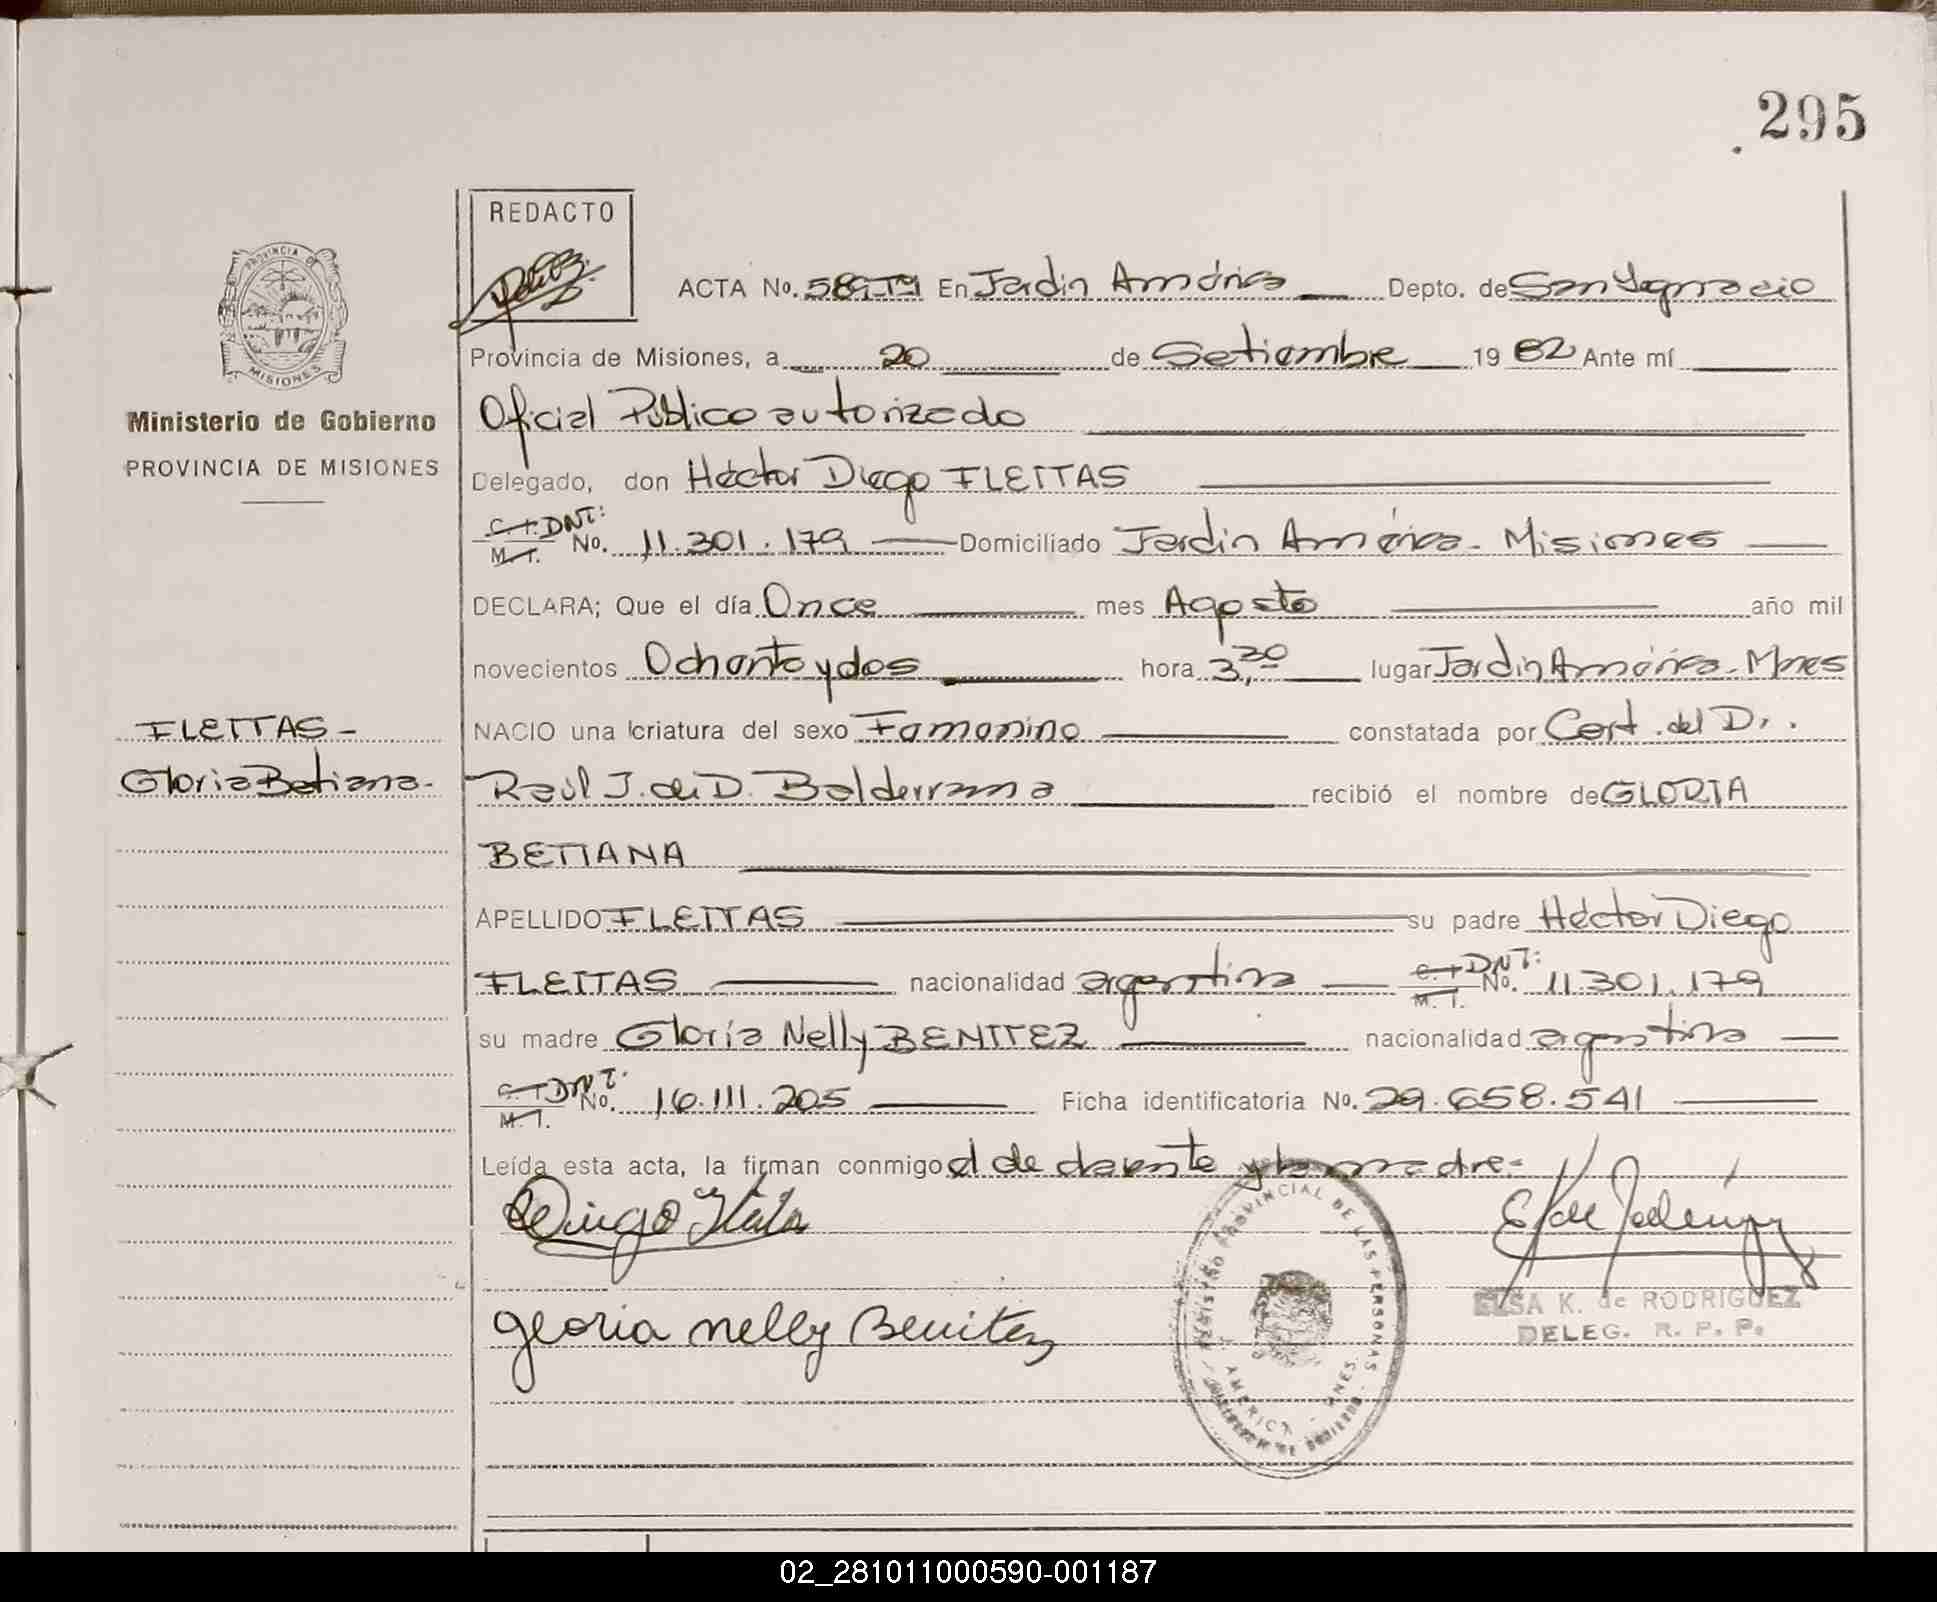 295
REDACTO
PROVINCIA DE
MISIONES
ACTA No. 589 En Jardin América Depto. de San Ygnacio
Provincia de Misiones, a 20 de Setiembre 1982 Ante mí
Ministerio de Gobierno
PROVINCIA DE MISIONES
Oficial Público autorizado
Delegado, don Héctor Diego FLEITAS
C.I. DNI: M.I. No. 11.301.179 Domiciliado Jardin América - Misiones
DECLARA; Que el día Once mes Agosto año mil
novecientos Ochenta y dos hora 3,30 lugar Jardin América - Mnes
FLEITAS -
Gloria Betiana -
NACIO una criatura del sexo Femenino constatada por Cert. del Dr.
Raúl J. de D. Balderrama recibió el nombre de GLORIA
BETIANA
APELLIDO FLEITAS su padre Héctor Diego
FLEITAS nacionalidad argentina C.I. DNI: M.I. No. 11.301.179
su madre Gloria Nelly BENITEZ nacionalidad argentina
C.I. DNI: M.I. No. 16.111.205 Ficha identificatoria No. 29.658.541
Leída esta acta, la firman conmigo el declarante y la madre.-
Diego
gloria nelly Benitez
REGISTRO PROVINCIAL DE LAS PERSONAS
AMERICA - MNES.
MINISTERIO DE GOBIERNO
ELSA K. de RODRIGUEZ
DELEG. R. P. P.
02_281011000590-001187